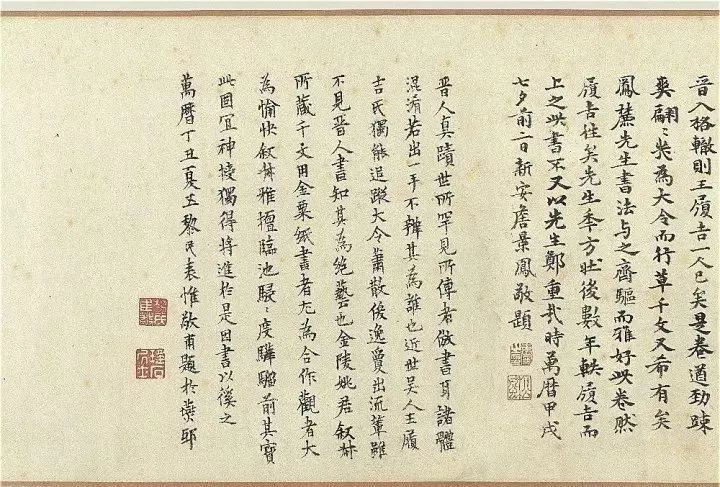 晋入格轍則王履吉一人已矣是卷遒勁踈
爽翩〻為大令而行草千文又希有矣
鳳麓先生書法與之齊驅而雅好此卷然
履吉往矣先生年方壯後數年軼履吉而
上之此書不又以先生鄭重哉時萬曆甲戌
七夕前二日新安詹景鳳敬題
晉人真蹟世所罕見所傳者倣書耳諸體
混淆若出一手不辨其為誰也近世吳人王履
吉氏獨能追蹤大令蕭散俊逸夐出流輩雖
不見晉人書知其為絕藝也金陵姚君叙卿
所藏千文用金粟紙書者尤為合作觀者大
為愉快叙卿雅擅臨池駸〻度驊騮前其寶
此固宜神情獨得將進於是因書以徯之
萬曆丁丑夏五黎民表惟敬甫題於燕邸